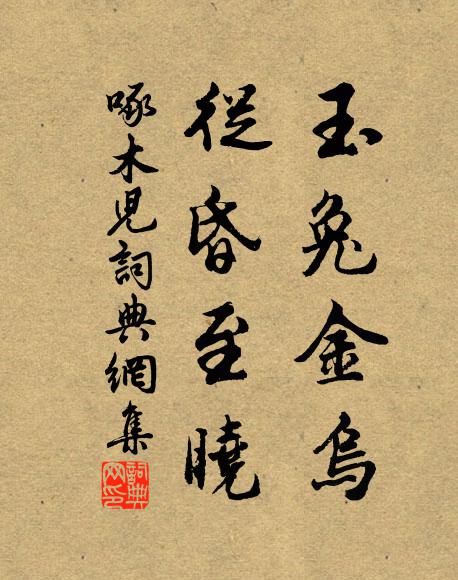 玉兔金烏
從昏至曉
啄木児詞典網集
詞典網印